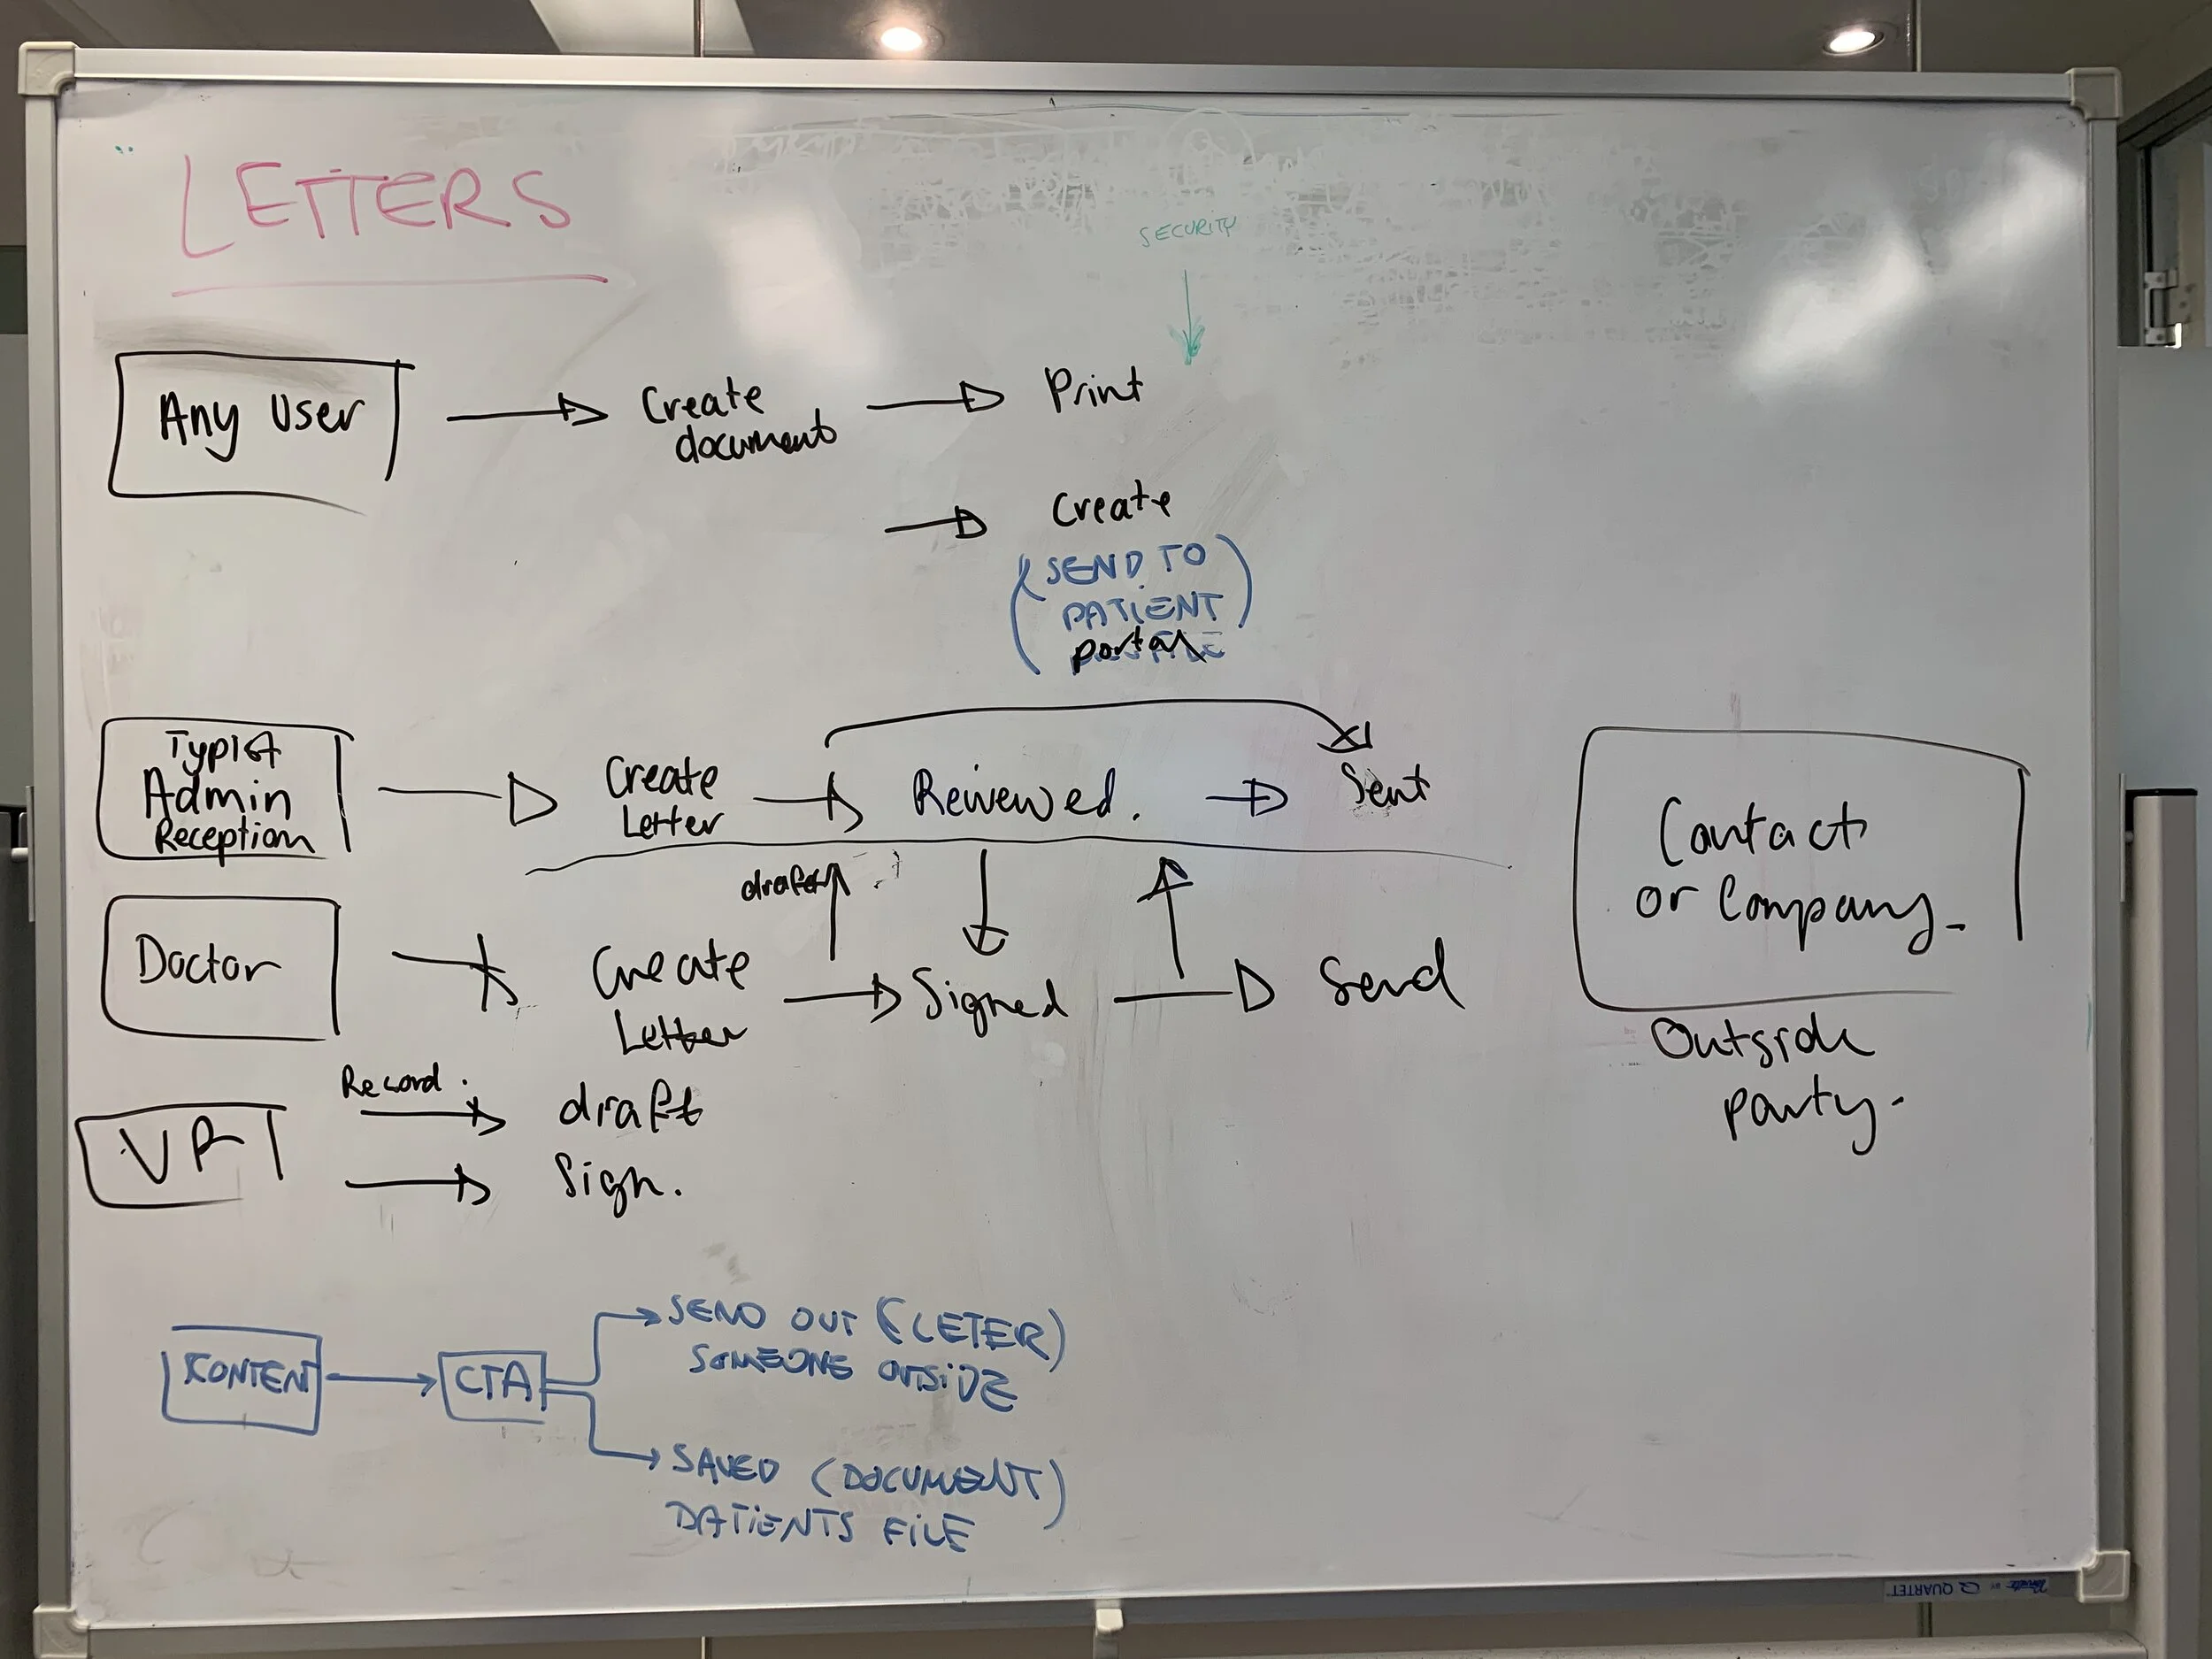 LETTERS
SECURITY
Any User
Create
document
Print
Create
(SEND TO
PATIENT)
portal
Typist
Admin
Reception
Create
Letter
Reviewed.
Sent
draft
Doctor
Create
Letter
Signed
Send
Contact
or Company.
Outside
party.
Record
draft
VR
Sign.
KONTENT
CTA
SEND OUT (LETER)
SOMEONE OUTSIDE
SAVED (DOCUMENT)
PATIENTS FILE
QUARTET